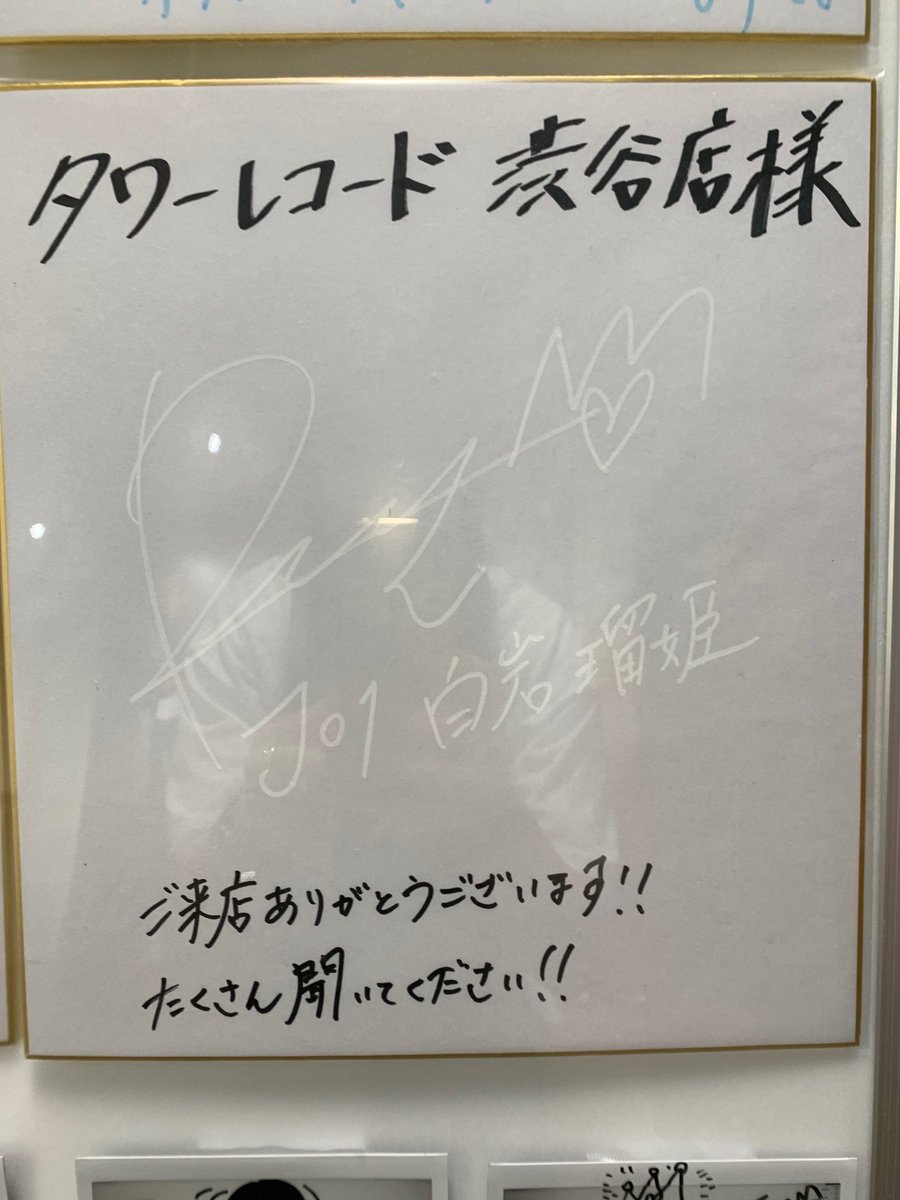 タワーレコード 渋谷店様
JO1 白岩瑠姫
ご来店ありがとうございます!!
たくさん聞いてください!!